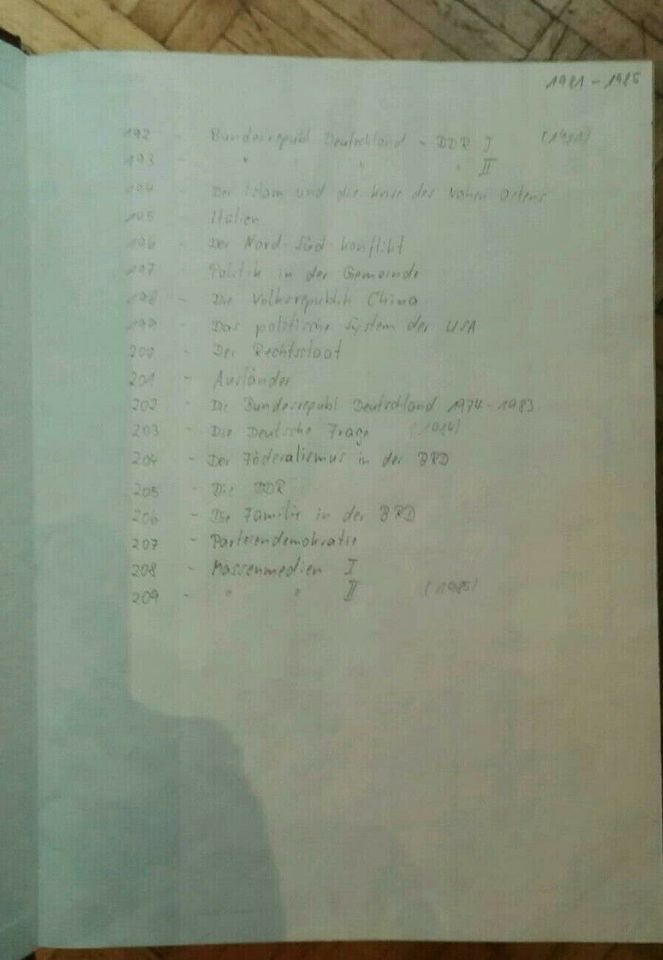 1981 - 1985
192 - Bundesrepubl Deutschland - DDR I (1981)
193 - " " " " II
194 - Der Islam und die Krise des Nahen Ostens
195 - Italien
196 - Der Nord-Süd-Konflikt
197 - Politik in der Gemeinde
198 - Die Volksrepublik China
199 - Das politische System der USA
200 - Der Rechtsstaat
201 - Ausländer
202 - Die Bundesrepubl Deutschland 1974-1983
203 - Die Deutsche Frage (1984)
204 - Der Föderalismus in der BRD
205 - Die DDR
206 - Die Familie in der BRD
207 - Parteiendemokratie
208 - Massenmedien I
209 - " " II (1985)